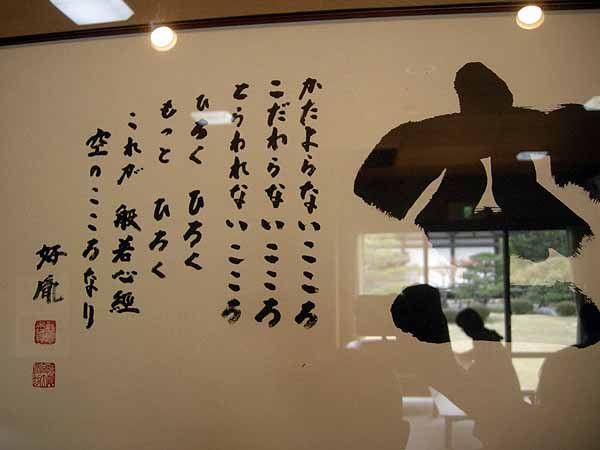 空
かたよらないこころ
こだわらないこころ
とらわれないこころ
ひろく ひろく
もっと ひろく
これが 般若心経
空のこころなり
好胤